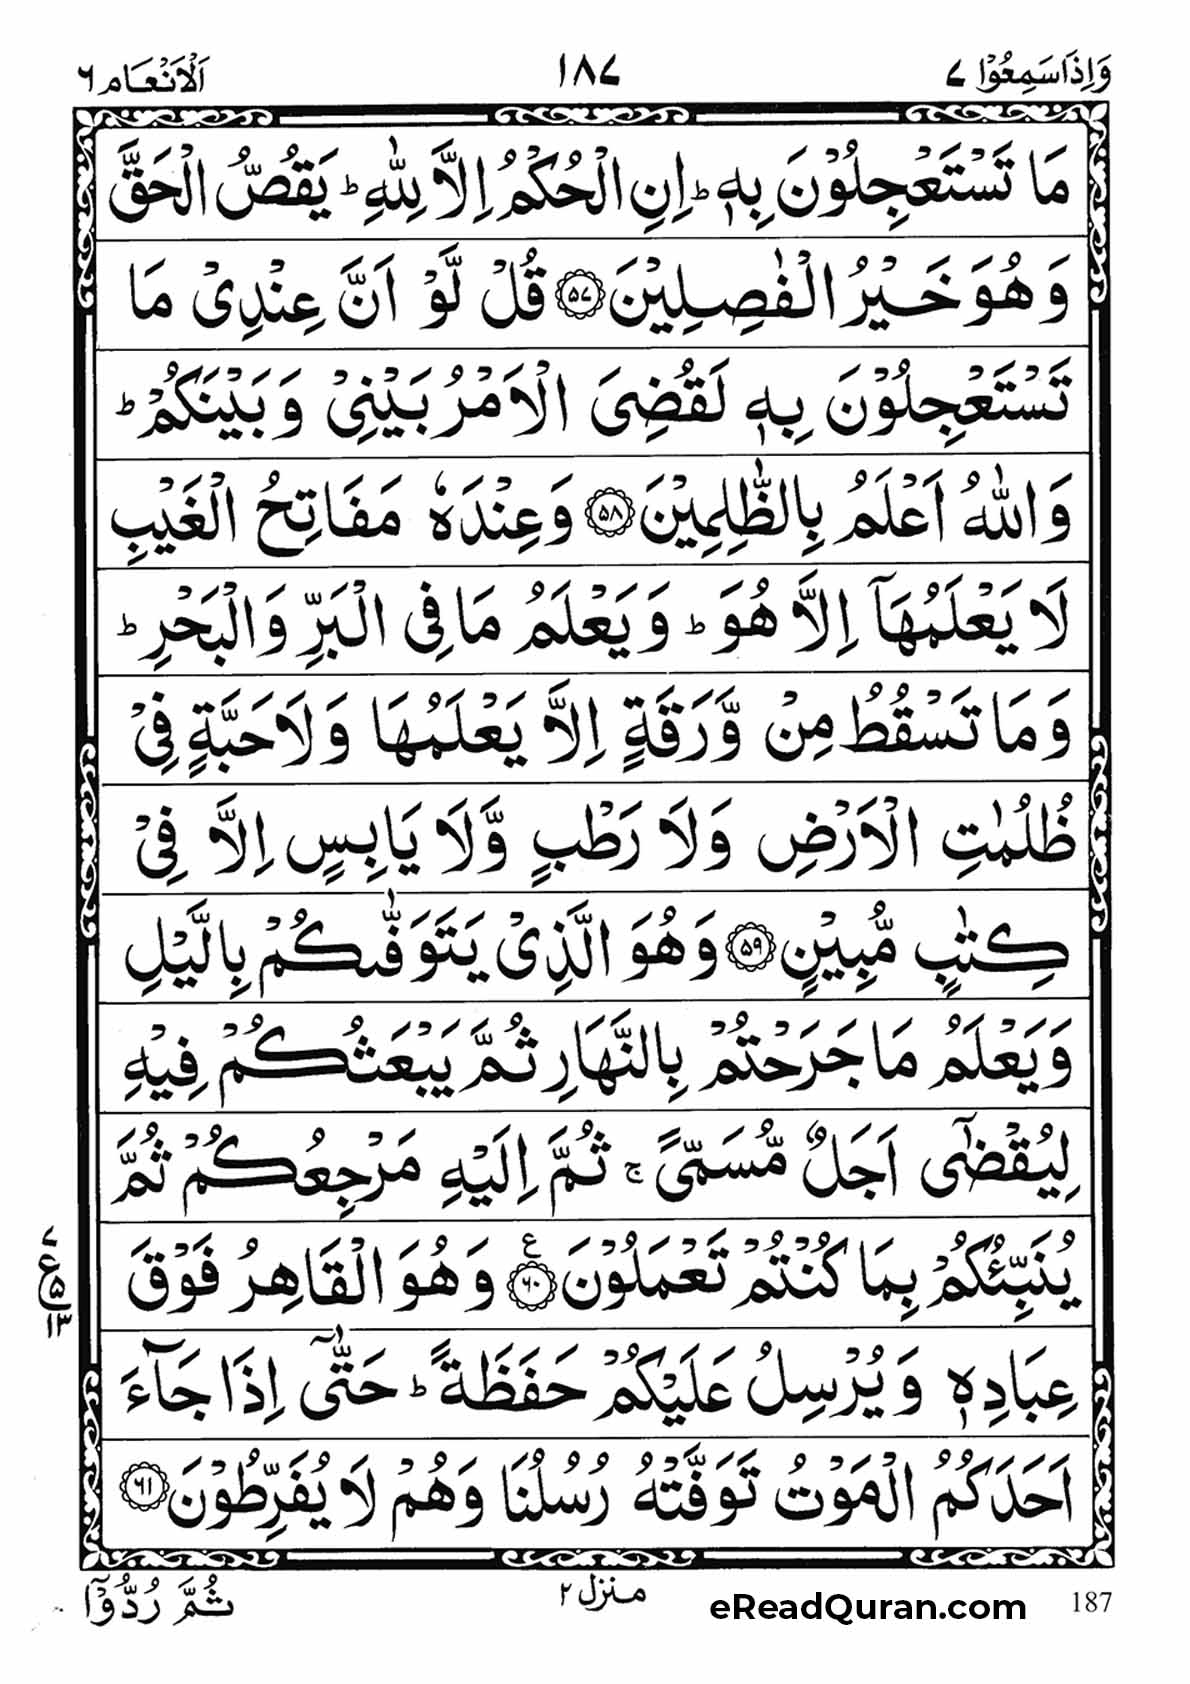 وَاِذَا سَمِعُوْا ٧ ١٨٧ اَلْاَنْعَام ٦
مَا تَسْتَعْجِلُوْنَ بِهٖ ؕ اِنِ الْحُكْمُ اِلَّا لِلّٰهِ ؕ يَقُصُّ الْحَقَّ
وَهُوَ خَيْرُ الْفٰصِلِيْنَ ۝۵۷ قُلْ لَّوْ اَنَّ عِنْدِىْ مَا
تَسْتَعْجِلُوْنَ بِهٖ لَقُضِىَ الْاَمْرُ بَيْنِىْ وَبَيْنَكُمْ ؕ
وَاللّٰهُ اَعْلَمُ بِالظّٰلِمِيْنَ ۝۵۸ وَعِنْدَهٗ مَفَاتِحُ الْغَيْبِ
لَا يَعْلَمُهَاۤ اِلَّا هُوَ ؕ وَيَعْلَمُ مَا فِى الْبَرِّ وَالْبَحْرِ ؕ
وَمَا تَسْقُطُ مِنْ وَّرَقَةٍ اِلَّا يَعْلَمُهَا وَلَا حَبَّةٍ فِىْ
ظُلُمٰتِ الْاَرْضِ وَلَا رَطْبٍ وَّلَا يَابِسٍ اِلَّا فِىْ
كِتٰبٍ مُّبِيْنٍ ۝۵۹ وَهُوَ الَّذِىْ يَتَوَفّٰىكُمْ بِالَّيْلِ
وَيَعْلَمُ مَا جَرَحْتُمْ بِالنَّهَارِ ثُمَّ يَبْعَثُكُمْ فِيْهِ
لِيُقْضٰٓى اَجَلٌ مُّسَمًّى ۚ ثُمَّ اِلَيْهِ مَرْجِعُكُمْ ثُمَّ
يُنَبِّئُكُمْ بِمَا كُنْتُمْ تَعْمَلُوْنَ ۝۶۰ ع وَهُوَ الْقَاهِرُ فَوْقَ
٧
ع ۵
١٣
عِبَادِهٖ وَيُرْسِلُ عَلَيْكُمْ حَفَظَةً ؕ حَتّٰٓى اِذَا جَآءَ
اَحَدَكُمُ الْمَوْتُ تَوَفَّتْهُ رُسُلُنَا وَهُمْ لَا يُفَرِّطُوْنَ ۝۶۱
ثُمَّ رُدُّوْۤا منزل ٢ eReadQuran.com 187